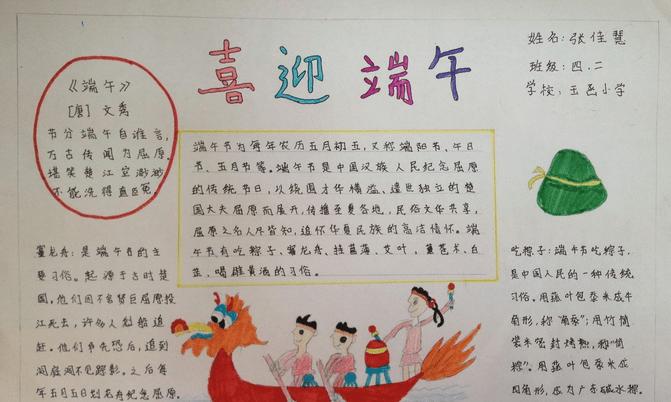 喜迎端午
姓名:张佳慧
班级:四.二
学校:玉邑小学
《端午》
[唐] 文秀
节分端午自谁言,
万古传闻为屈原。
堪笑楚江空渺渺
不能洗得直臣冤。
端午节为每年农历五月初五,又称端阳节、午日
节、五月节等。端午节是中国汉族人民纪念屈原
的传统节日,以围绕才华横溢、遗世独立的楚
国大夫屈原而展开,传播至夏各地,民俗文华共享,
屈原之名人尽皆知,追怀华夏民族的高洁情怀。端
午节有吃粽子、赛龙舟、挂菖蒲、艾叶,薰苍术、白
芷、喝雄黄酒的习俗。
赛龙舟:是端午节的主
要习俗。起源于古时楚
国,他们因不舍贤臣屈原投
江死去,许多人划船追
赶。他们争先恐后,追到
洞庭湖不见踪影。之后每
年五月五日划龙舟纪念屈原。
吃粽子:端午节吃粽子,
是中国人民的一种传统
习俗。用菰叶包黍米成牛
角形,称“角黍”;用竹筒
装米密封烤熟,称“筒
粽”。用菰叶包黍米成
四角形,成为广东碱水粽。